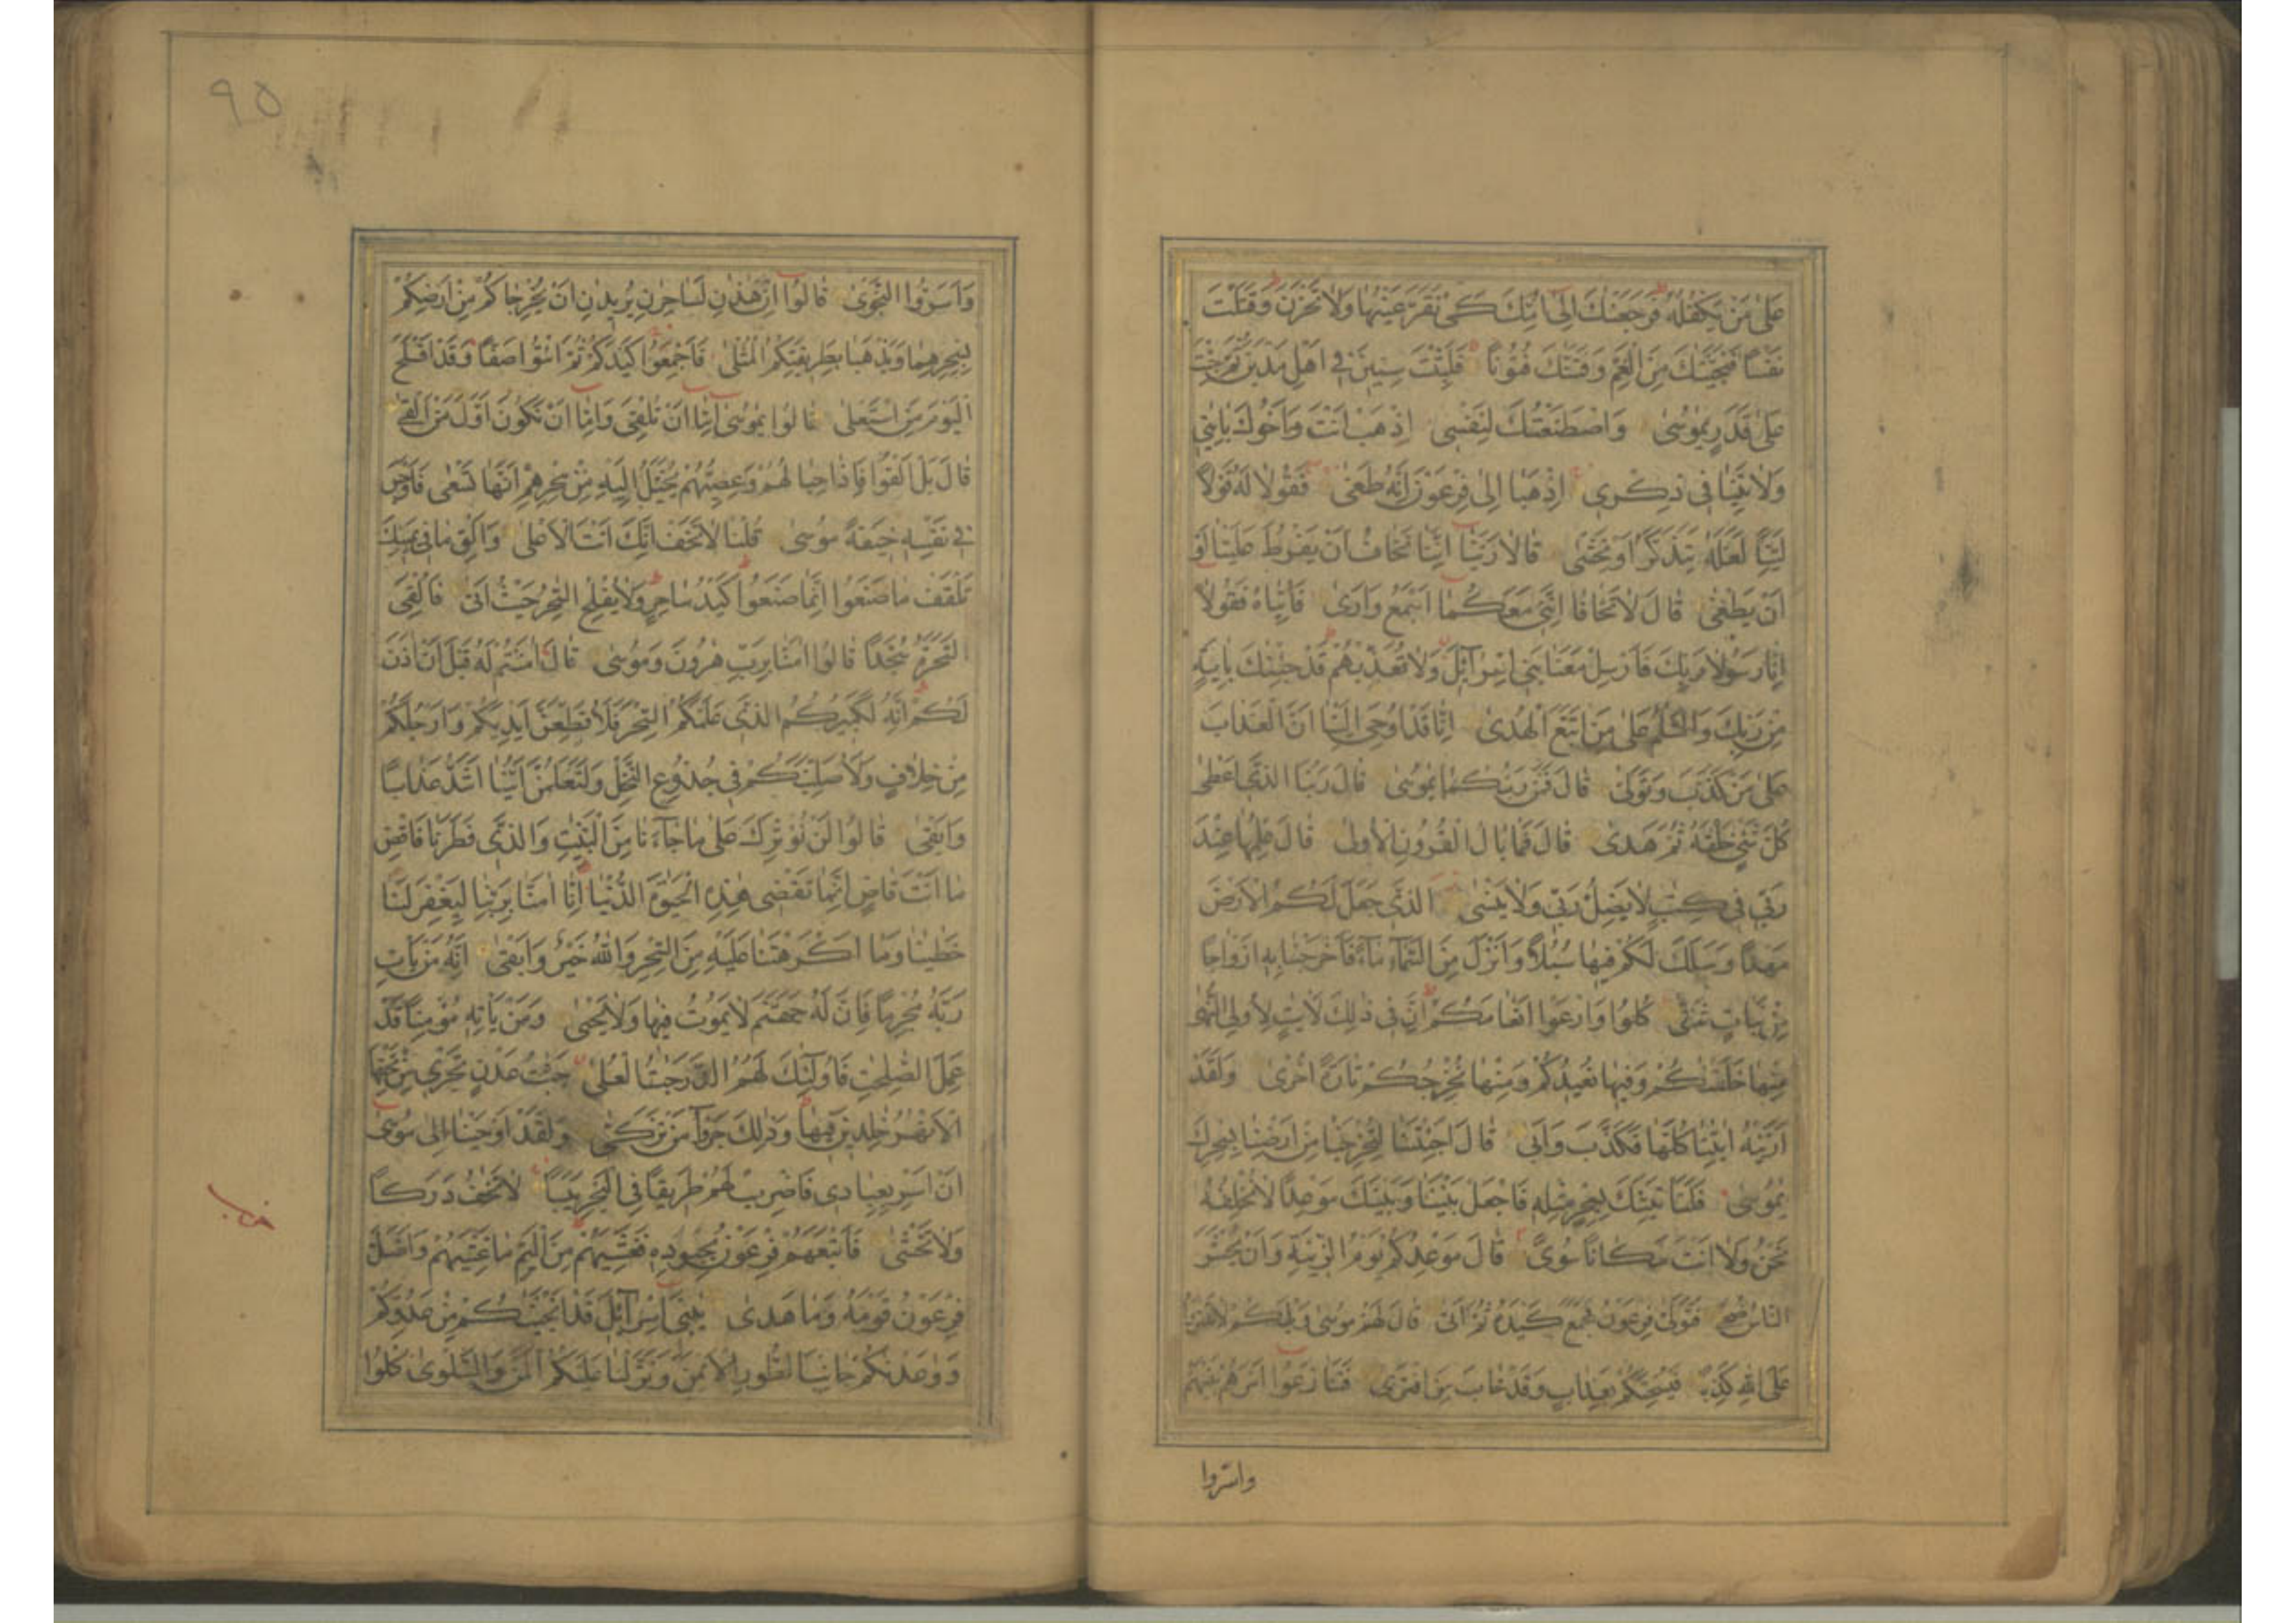 عَلٰى مَنْ يَكْفُلُهُ فَرَجَعْنٰكَ اِلٰى اُمِّكَ كَىْ تَقَرَّ عَيْنُهٰا وَلٰا تَحْزَنَ وَقَتَلْتَ
نَفْسًا فَنَجَّيْنٰكَ مِنَ الْغَمِّ وَفَتَنّٰكَ فُتُونًا فَلَبِثْتَ سِنِينَ فِى اَهْلِ مَدْيَنَ ثُمَّ جِئْتَ
عَلٰى قَدَرٍ يٰمُوسٰى وَاصْطَنَعْتُكَ لِنَفْسِى اِذْهَبْ اَنْتَ وَاَخُوكَ بِاٰيٰتِى
وَلٰا تَنِيٰا فِى ذِكْرِى اِذْهَبٰا اِلٰى فِرْعَوْنَ اِنَّهُ طَغٰى فَقُولٰا لَهُ قَوْلًا
لَيِّنًا لَعَلَّهُ يَتَذَكَّرُ اَوْ يَخْشٰى قٰالٰا رَبَّنٰا اِنَّنٰا نَخٰافُ اَنْ يَفْرُطَ عَلَيْنٰا اَوْ
اَنْ يَطْغٰى قٰالَ لٰا تَخٰافٰا اِنَّنِى مَعَكُمٰا اَسْمَعُ وَاَرٰى فَاْتِيٰاهُ فَقُولٰا
اِنّٰا رَسُولٰا رَبِّكَ فَاَرْسِلْ مَعَنٰا بَنِى اِسْرٰآئِلَ وَلٰا تُعَذِّبْهُمْ قَدْ جِئْنٰكَ بِاٰيَةٍ
مِنْ رَبِّكَ وَالسَّلٰمُ عَلٰى مَنِ اتَّبَعَ الْهُدٰى اِنّٰا قَدْ اُوحِىَ اِلَيْنٰا اَنَّ الْعَذٰابَ
عَلٰى مَنْ كَذَّبَ وَتَوَلّٰى قٰالَ فَمَنْ رَبُّكُمٰا يٰمُوسٰى قٰالَ رَبُّنَا الَّذِى اَعْطٰى
كُلَّ شَىْءٍ خَلْقَهُ ثُمَّ هَدٰى قٰالَ فَمٰا بٰالُ الْقُرُونِ الْاُولٰى قٰالَ عِلْمُهٰا عِنْدَ
رَبِّى فِى كِتٰبٍ لٰا يَضِلُّ رَبِّى وَلٰا يَنْسٰى الَّذِى جَعَلَ لَكُمُ الْاَرْضَ
مَهْدًا وَسَلَكَ لَكُمْ فِيهٰا سُبُلًا وَاَنْزَلَ مِنَ السَّمٰآءِ مٰآءً فَاَخْرَجْنٰا بِهِ اَزْوٰاجًا
مِنْ نَبٰاتٍ شَتّٰى كُلُوا وَارْعَوْا اَنْعٰامَكُمْ اِنَّ فِى ذٰلِكَ لَاٰيٰتٍ لِاُولِى النُّهٰى
مِنْهٰا خَلَقْنٰكُمْ وَفِيهٰا نُعِيدُكُمْ وَمِنْهٰا نُخْرِجُكُمْ تٰارَةً اُخْرٰى وَلَقَدْ
اَرَيْنٰهُ اٰيٰتِنٰا كُلَّهٰا فَكَذَّبَ وَاَبٰى قٰالَ اَجِئْتَنٰا لِتُخْرِجَنٰا مِنْ اَرْضِنٰا بِسِحْرِكَ
يٰمُوسٰى فَلَنَاْتِيَنَّكَ بِسِحْرٍ مِثْلِهِ فَاجْعَلْ بَيْنَنٰا وَبَيْنَكَ مَوْعِدًا لٰا نُخْلِفُهُ
نَحْنُ وَلٰا اَنْتَ مَكٰانًا سُوًى قٰالَ مَوْعِدُكُمْ يَوْمُ الزِّينَةِ وَاَنْ يُحْشَرَ
النّٰاسُ ضُحًى فَتَوَلّٰى فِرْعَوْنُ فَجَمَعَ كَيْدَهُ ثُمَّ اَتٰى قٰالَ لَهُمْ مُوسٰى وَيْلَكُمْ لٰا تَفْتَرُوا
عَلَى اللّٰهِ كَذِبًا فَيُسْحِتَكُمْ بِعَذٰابٍ وَقَدْ خٰابَ مَنِ افْتَرٰى فَتَنٰازَعُوا اَمْرَهُمْ بَيْنَهُمْ
واسرّوا
٩٥
وَاَسَرُّوا النَّجْوٰى قٰالُوا اِنْ هٰذٰنِ لَسٰاحِرٰنِ يُرِيدٰنِ اَنْ يُخْرِجٰاكُمْ مِنْ اَرْضِكُمْ
بِسِحْرِهِمٰا وَيَذْهَبٰا بِطَرِيقَتِكُمُ الْمُثْلٰى فَاَجْمِعُوا كَيْدَكُمْ ثُمَّ ائْتُوا صَفًّا وَقَدْ اَفْلَحَ
الْيَوْمَ مَنِ اسْتَعْلٰى قٰالُوا يٰمُوسٰى اِمّٰا اَنْ تُلْقِىَ وَاِمّٰا اَنْ نَكُونَ اَوَّلَ مَنْ اَلْقٰى
قٰالَ بَلْ اَلْقُوا فَاِذٰا حِبٰالُهُمْ وَعِصِيُّهُمْ يُخَيَّلُ اِلَيْهِ مِنْ سِحْرِهِمْ اَنَّهٰا تَسْعٰى فَاَوْجَسَ
فِى نَفْسِهِ خِيفَةً مُوسٰى قُلْنٰا لٰا تَخَفْ اِنَّكَ اَنْتَ الْاَعْلٰى وَاَلْقِ مٰا فِى يَمِينِكَ
تَلْقَفْ مٰا صَنَعُوا اِنَّمٰا صَنَعُوا كَيْدُ سٰاحِرٍ وَلٰا يُفْلِحُ السّٰحِرُ حَيْثُ اَتٰى فَاُلْقِىَ
السَّحَرَةُ سُجَّدًا قٰالُوا اٰمَنّٰا بِرَبِّ هٰرُونَ وَمُوسٰى قٰالَ اٰمَنْتُمْ لَهُ قَبْلَ اَنْ اٰذَنَ
لَكُمْ اِنَّهُ لَكَبِيرُكُمُ الَّذِى عَلَّمَكُمُ السِّحْرَ فَلَاُقَطِّعَنَّ اَيْدِيَكُمْ وَاَرْجُلَكُمْ
مِنْ خِلٰافٍ وَلَاُصَلِّبَنَّكُمْ فِى جُذُوعِ النَّخْلِ وَلَتَعْلَمُنَّ اَيُّنٰا اَشَدُّ عَذٰابًا
وَاَبْقٰى قٰالُوا لَنْ نُؤْثِرَكَ عَلٰى مٰا جٰآءَنٰا مِنَ الْبَيِّنٰتِ وَالَّذِى فَطَرَنٰا فَاقْضِ
مٰا اَنْتَ قٰاضٍ اِنَّمٰا تَقْضِى هٰذِهِ الْحَيٰوةَ الدُّنْيٰا اِنّٰا اٰمَنّٰا بِرَبِّنٰا لِيَغْفِرَ لَنٰا
خَطٰيٰنٰا وَمٰا اَكْرَهْتَنٰا عَلَيْهِ مِنَ السِّحْرِ وَاللّٰهُ خَيْرٌ وَاَبْقٰى اِنَّهُ مَنْ يَاْتِ
رَبَّهُ مُجْرِمًا فَاِنَّ لَهُ جَهَنَّمَ لٰا يَمُوتُ فِيهٰا وَلٰا يَحْيٰى وَمَنْ يَاْتِهِ مُؤْمِنًا قَدْ
عَمِلَ الصّٰلِحٰتِ فَاُولٰٓئِكَ لَهُمُ الدَّرَجٰتُ الْعُلٰى جَنّٰتُ عَدْنٍ تَجْرِى مِنْ تَحْتِهَا
الْاَنْهٰرُ خٰلِدِينَ فِيهٰا وَذٰلِكَ جَزٰٓؤُا مَنْ تَزَكّٰى وَلَقَدْ اَوْحَيْنٰا اِلٰى مُوسٰى
اَنْ اَسْرِ بِعِبٰادِى فَاضْرِبْ لَهُمْ طَرِيقًا فِى الْبَحْرِ يَبَسًا لٰا تَخٰفُ دَرَكًا
وَلٰا تَخْشٰى فَاَتْبَعَهُمْ فِرْعَوْنُ بِجُنُودِهِ فَغَشِيَهُمْ مِنَ الْيَمِّ مٰا غَشِيَهُمْ وَاَضَلَّ
فِرْعَوْنُ قَوْمَهُ وَمٰا هَدٰى يٰبَنِى اِسْرٰآئِلَ قَدْ اَنْجَيْنٰكُمْ مِنْ عَدُوِّكُمْ
وَوٰعَدْنٰكُمْ جٰانِبَ الطُّورِ الْاَيْمَنَ وَنَزَّلْنٰا عَلَيْكُمُ الْمَنَّ وَالسَّلْوٰى كُلُوا